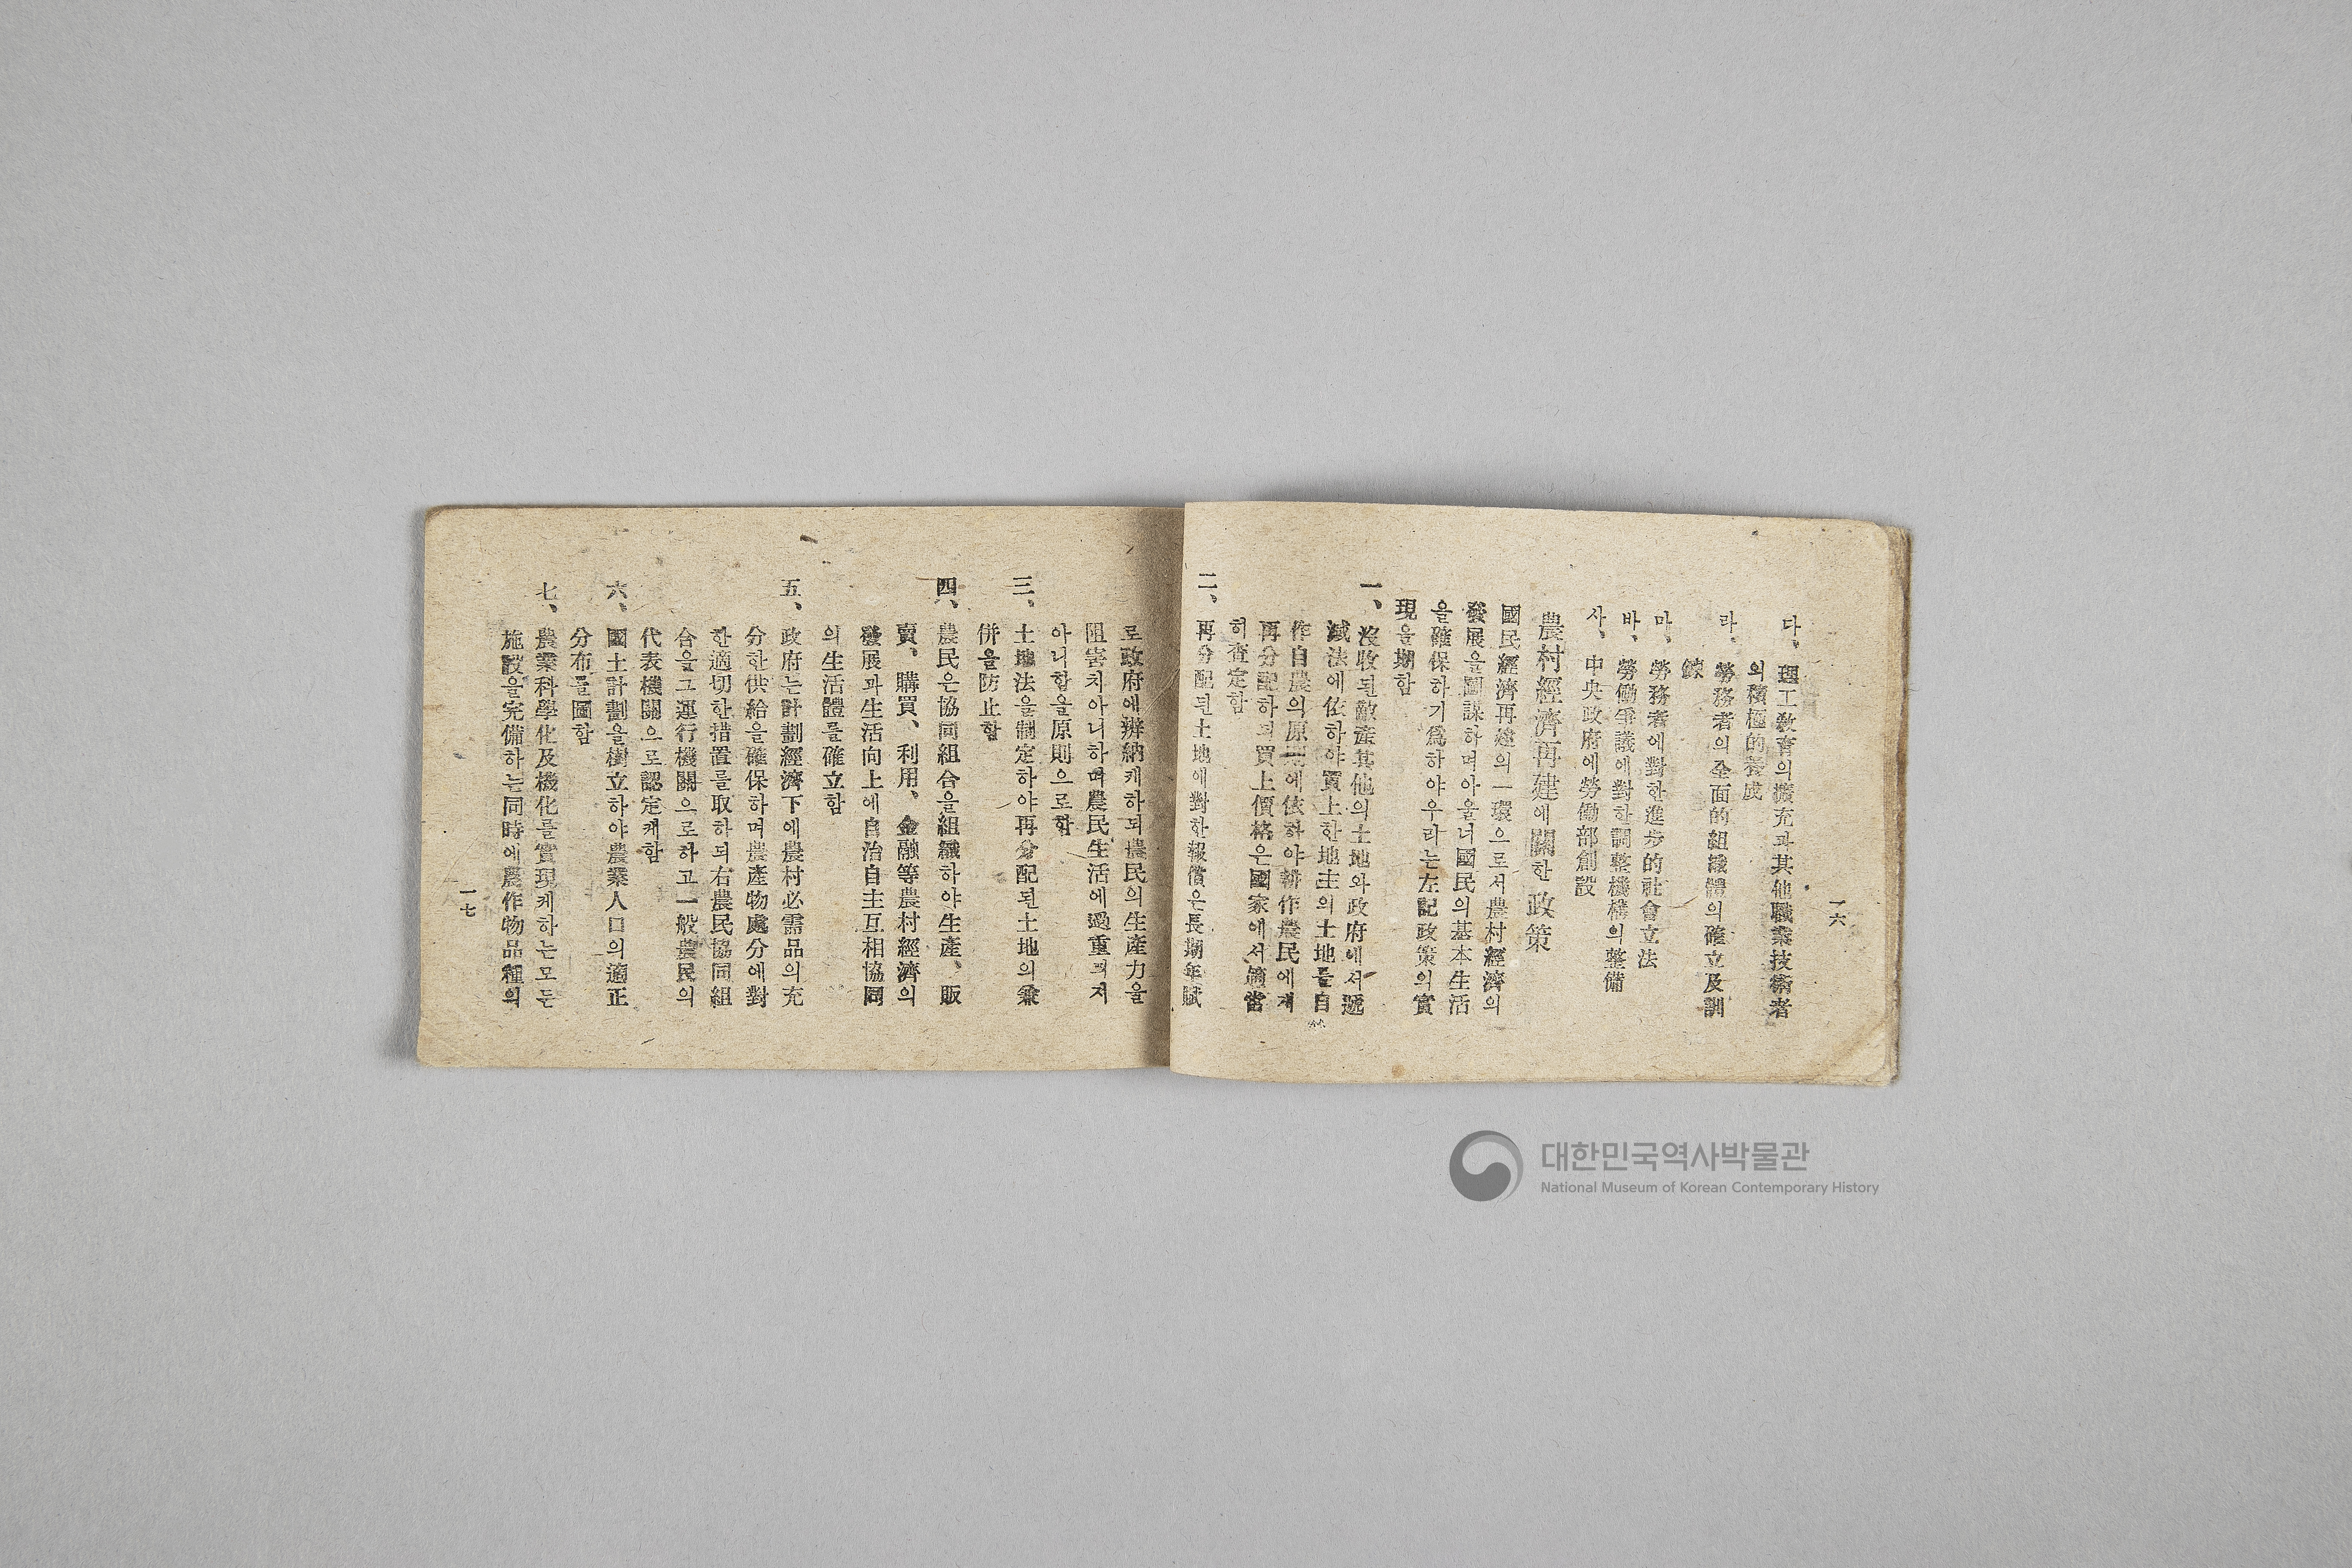 一六
다、理工敎育의擴充과其他職業技術者
의積極的養成
라、勞務者의全面的組織體의確立及訓
鍊
마、勞務者에對한進步的社會立法
바、勞働爭議에對한調整機構의整備
사、中央政府에勞働部創設
農村經濟再建에關한政策
國民經濟再建의一環으로서農村經濟의
發展을圖謀하며아울너國民의基本生活
을確保하기爲하야우리는左記政策의實
現을期함
一、沒收된敵產其他의土地와政府에서遞
減法에依하야買上한地主의土地를自
作自農의原則에依하야耕作農民에게
再分配하되買上價格은國家에서適當
히査定함
二、再分配된土地에對한報償은長期年賦
로政府에辦納케하되農民의生產力을
阻害치아니하며農民生活에過重되지
아니함을原則으로함
三、土地法을制定하야再分配된土地의兼
併을防止함
四、農民은協同組合을組織하야生產、販
賣、購買、利用、金融等農村經濟의
發展과生活向上에自治自主互相協同
의生活體를確立함
五、政府는計劃經濟下에農村必需品의充
分한供給을確保하며農產物處分에對
한適切한措置를取하되右農民協同組
合을그運行機關으로하고一般農民의
代表機關으로認定케함
六、國土計劃을樹立하야農業人口의適正
分布를圖함
七、農業科學化及機化를實現케하는모든
施設을完備하는同時에農作物品種의
一七
대한민국역사박물관
National Museum of Korean Contemporary History